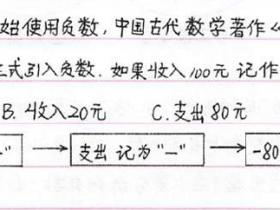 始使用负数，中国古代数学著作《
正式引入负数．如果收入100元记作
B. 收入20元 C. 支出80元
支出 记为“—” -80